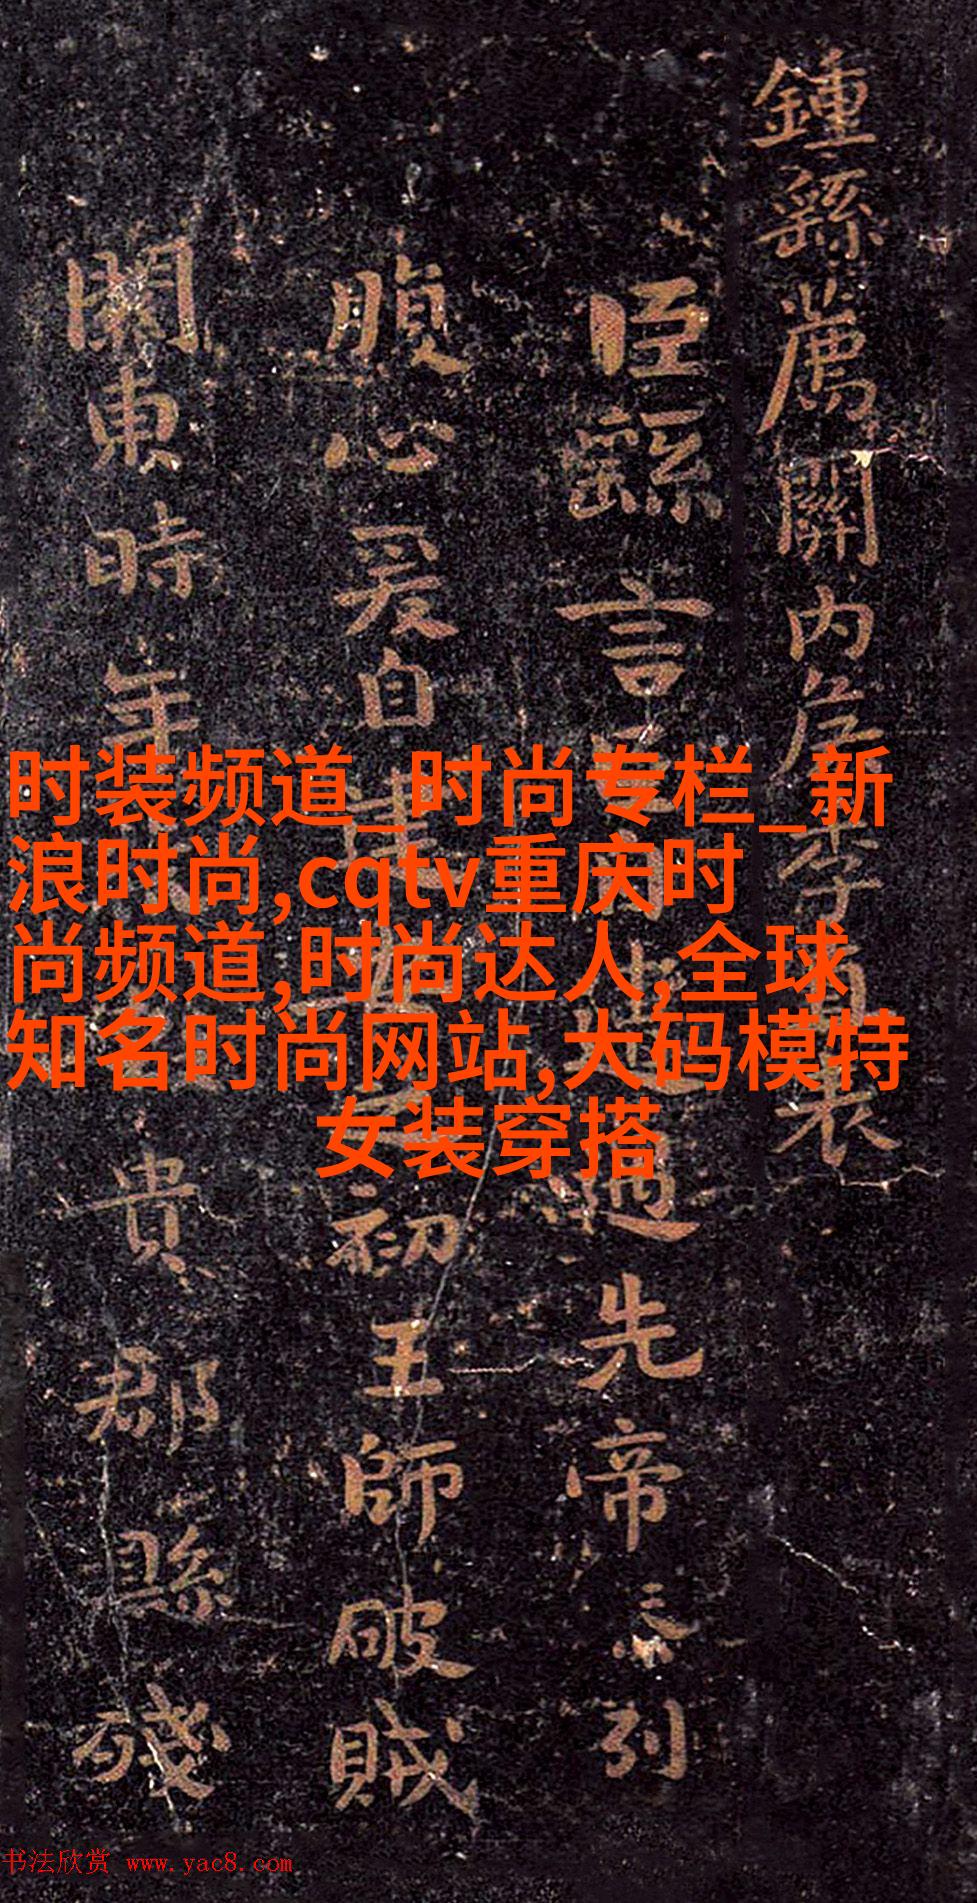 鍾繇薦關内侯季直表
臣繇言臣自遭遇先帝忝列
腹心爰自建安之初王師破賊
關東時年貴郡縣殘
时装频道_时尚专栏_新
浪时尚,cqtv重庆时
尚频道,时尚达人,全球
知名时尚网站,大码模特
女装穿搭
书法欣赏 www.yac8.com